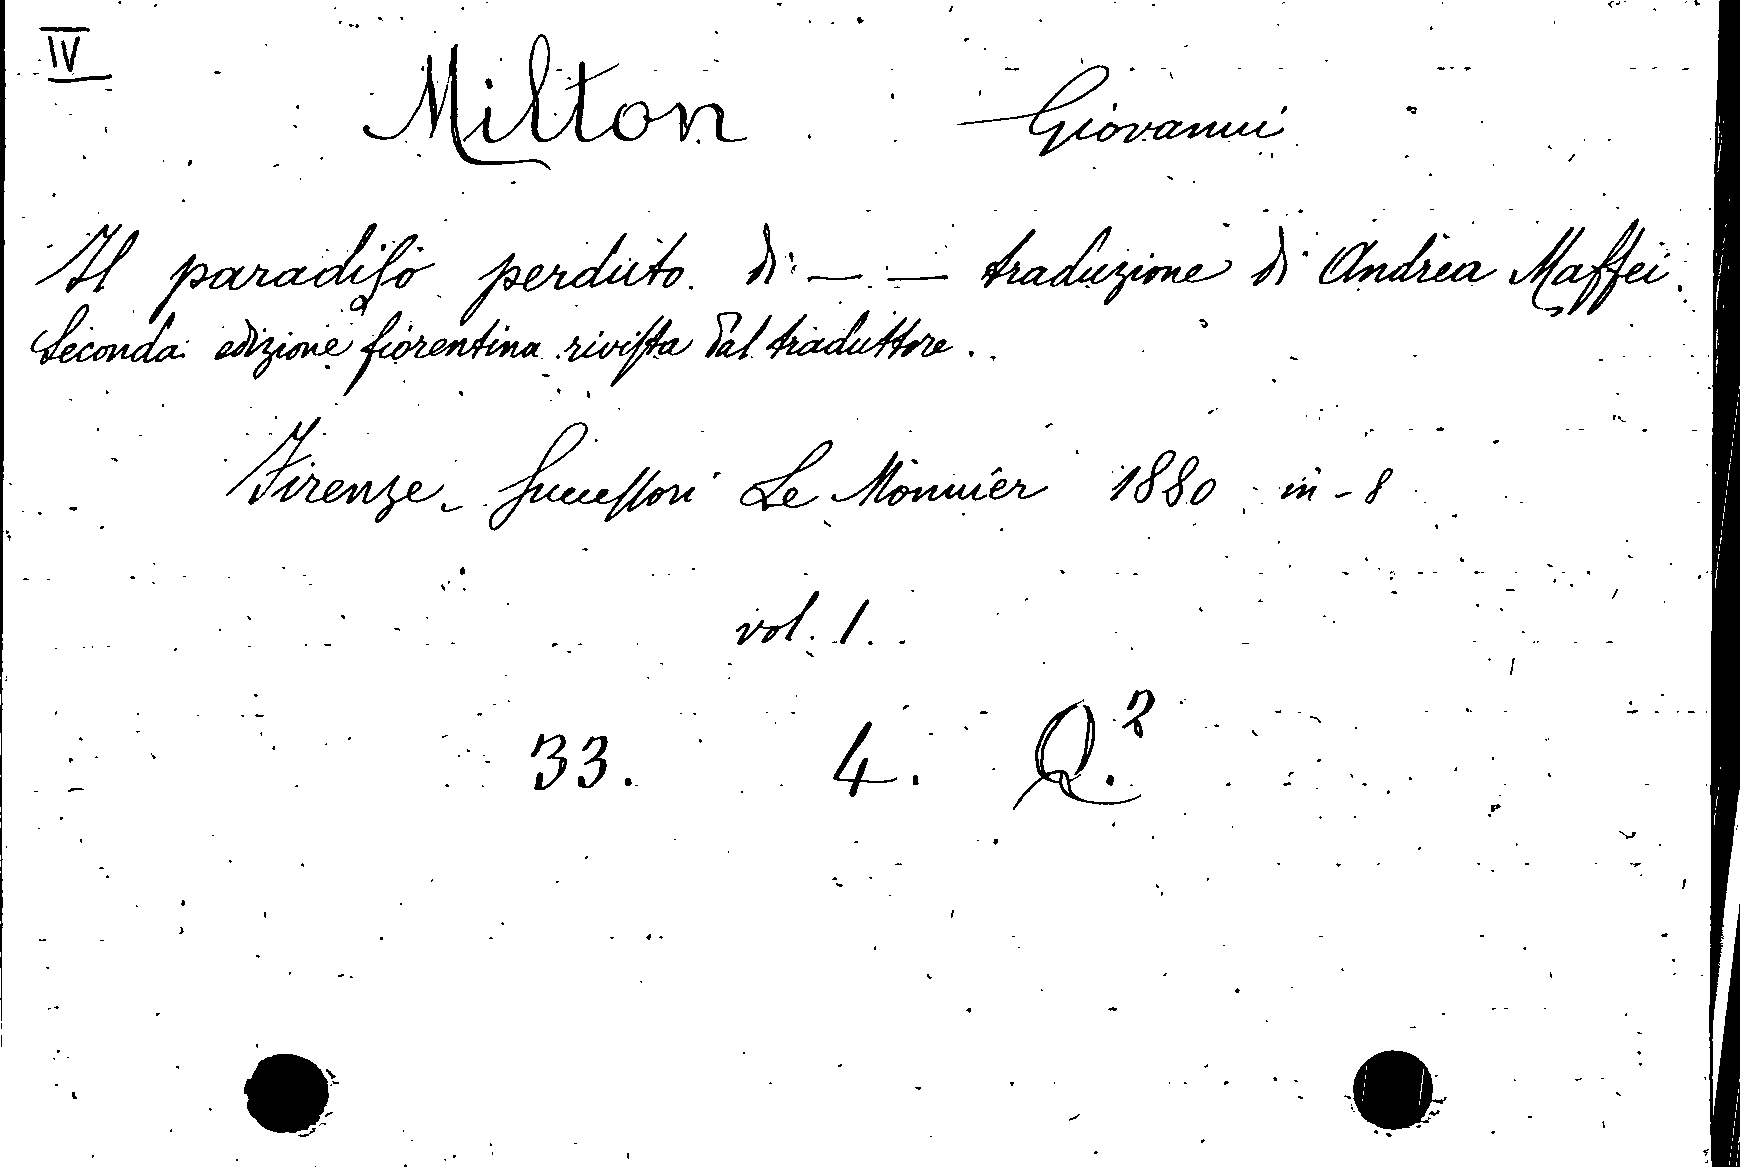 IV
Milton — Giovanni
Il paradiso perduto di — — traduzione di Andrea Maffei.
Seconda edizione fiorentina rivista dal traduttore.
Firenze - Successori Le Monnier 1880 in-8
vol. 1.
33. 4. Q.²